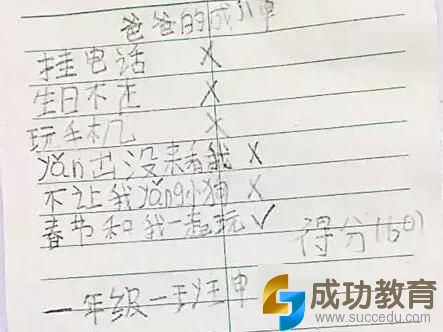 爸爸的成八单
挂电话 X
生日不在 X
玩手机 X
yǎn出没来看我 X
不让我yǎng小狗 X
春节和我一起玩 ✓
得分(60)
一年级一班
单
成功教育
www.succedu.com